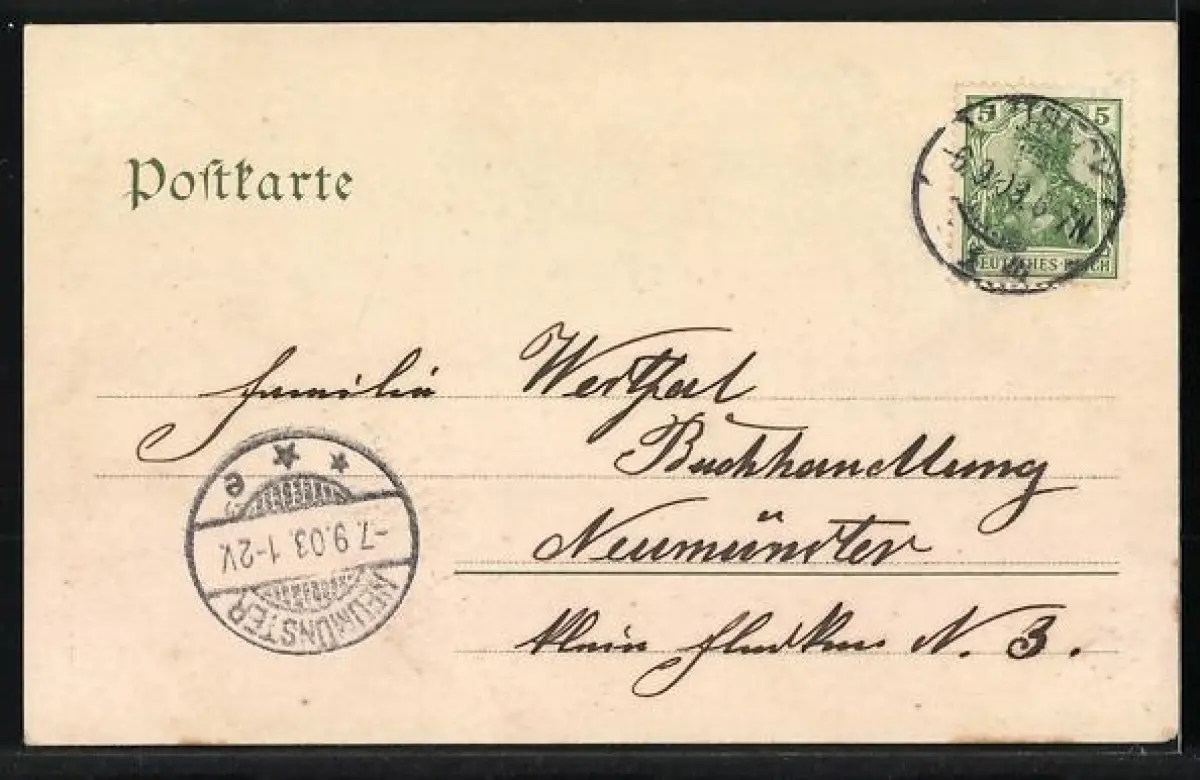 Postkarte
5 5
DEUTSCHES REICH
Familie Westfal
Buchhandlung
Neumünster
klein Flecken N. 3.
* * e
-7.9.03. 1-2V.
NEUMÜNSTER